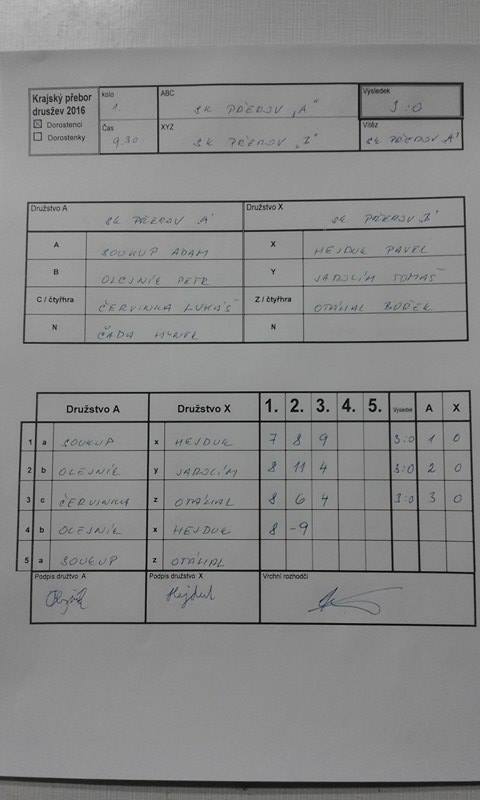 Krajský přebor družšev 2016
☒ Dorostenci
☐ Dorostenky
kolo 1.
ABC SK PŘEROV „A“
Výsledek 3:0
Čas 9,30
XYZ SK PŘEROV „B“
Vítěz SK PŘEROV „A“
Družstvo A SK PŘEROV „A“ Družstvo X SK PŘEROV „B“
A SOUKUP ADAM X HEJDUK PAVEL
B OLEJNÍK PETR Y JAROLÍM TOMÁŠ
C / čtyřhra ČERVINKA LUKÁŠ Z / čtyřhra OTÁHAL
N ČADA HYNEK N
Družstvo A Družstvo X 1. 2. 3. 4. 5. Výsledek A X
1 a SOUKUP x HEJDUK 7 8 9 3:0 1 0
2 b OLEJNÍK y JAROLÍM 8 11 4 3:0 2 0
3 c ČERVINKA z OTÁHAL 8 6 4 3:0 3 0
4 b OLEJNÍK x HEJDUK 8 -9
5 a SOUKUP z OTÁHAL
Podpis družtvo A Podpis družstvo X Vrchní rozhodčí
Hejduk